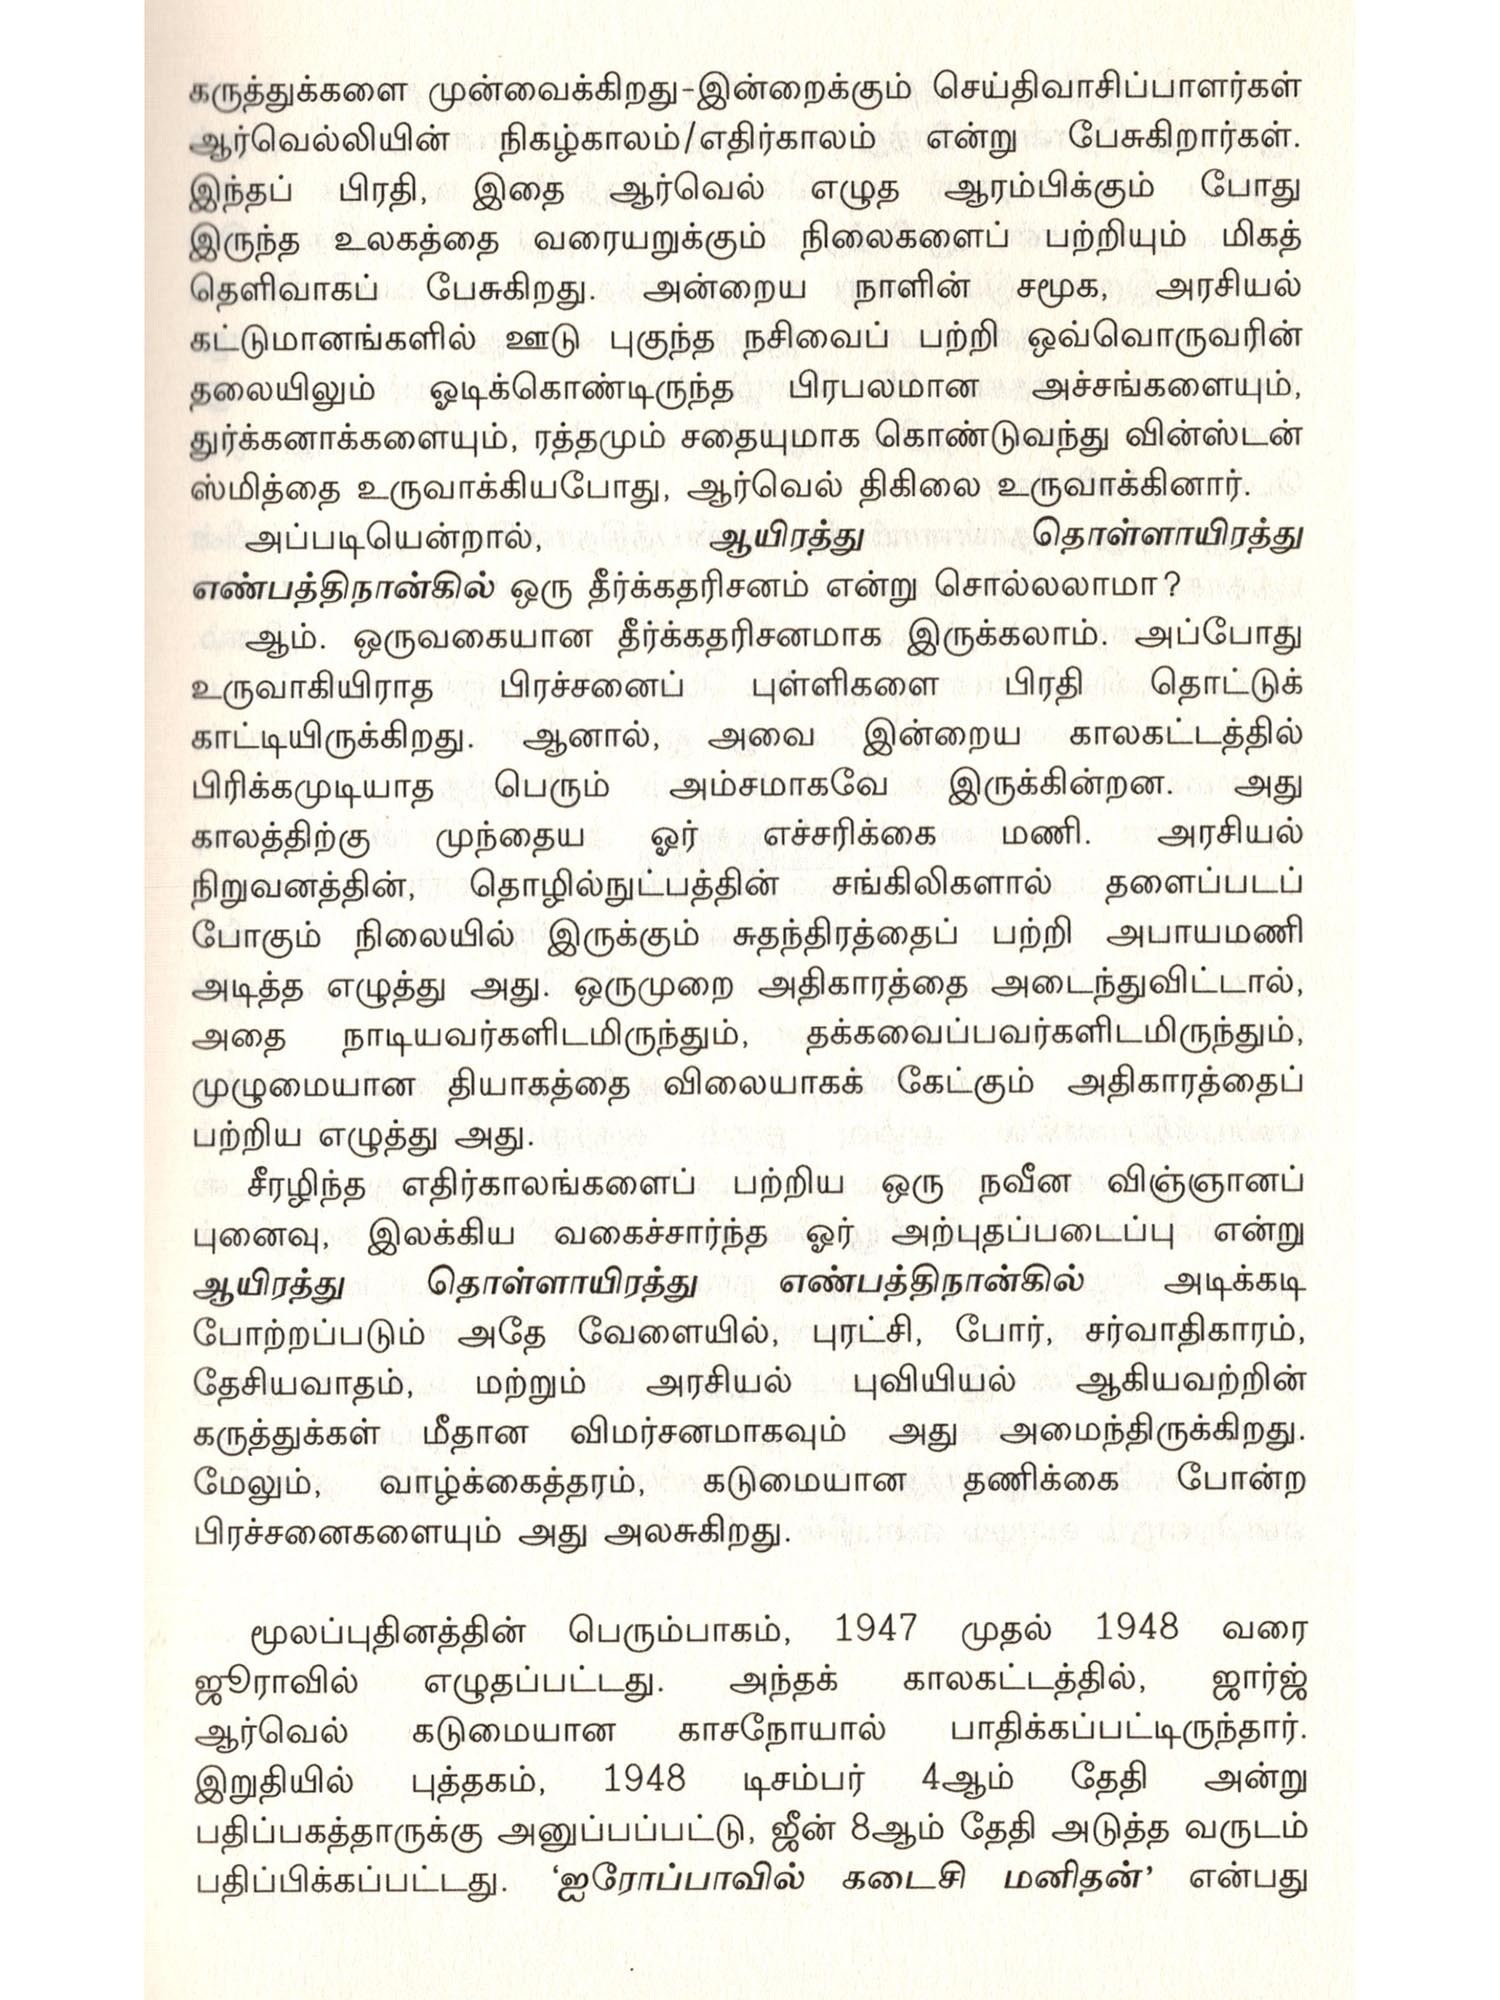 கருத்துக்களை முன்வைக்கிறது-இன்றைக்கும் செய்திவாசிப்பாளர்கள்
ஆர்வெல்லியின் நிகழ்காலம்/எதிர்காலம் என்று பேசுகிறார்கள்.
இந்தப் பிரதி, இதை ஆர்வெல் எழுத ஆரம்பிக்கும் போது
இருந்த உலகத்தை வரையறுக்கும் நிலைகளைப் பற்றியும் மிகத்
தெளிவாகப் பேசுகிறது. அன்றைய நாளின் சமூக, அரசியல்
கட்டுமானங்களில் ஊடு புகுந்த நசிவைப் பற்றி ஒவ்வொருவரின்
தலையிலும் ஓடிக்கொண்டிருந்த பிரபலமான அச்சங்களையும்,
துர்க்கனாக்களையும், ரத்தமும் சதையுமாக கொண்டுவந்து வின்ஸ்டன்
ஸ்மித்தை உருவாக்கியபோது, ஆர்வெல் திகிலை உருவாக்கினார்.
அப்படியென்றால், ஆயிரத்து தொள்ளாயிரத்து
எண்பத்திநான்கில் ஒரு தீர்க்கதரிசனம் என்று சொல்லலாமா?
ஆம். ஒருவகையான தீர்க்கதரிசனமாக இருக்கலாம். அப்போது
உருவாகியிராத பிரச்சனைப் புள்ளிகளை பிரதி தொட்டுக்
காட்டியிருக்கிறது. ஆனால், அவை இன்றைய காலகட்டத்தில்
பிரிக்கமுடியாத பெரும் அம்சமாகவே இருக்கின்றன. அது
காலத்திற்கு முந்தைய ஓர் எச்சரிக்கை மணி. அரசியல்
நிறுவனத்தின், தொழில்நுட்பத்தின் சங்கிலிகளால் தளைப்படப்
போகும் நிலையில் இருக்கும் சுதந்திரத்தைப் பற்றி அபாயமணி
அடித்த எழுத்து அது. ஒருமுறை அதிகாரத்தை அடைந்துவிட்டால்,
அதை நாடியவர்களிடமிருந்தும், தக்கவைப்பவர்களிடமிருந்தும்,
முழுமையான தியாகத்தை விலையாகக் கேட்கும் அதிகாரத்தைப்
பற்றிய எழுத்து அது.
சீரழிந்த எதிர்காலங்களைப் பற்றிய ஒரு நவீன விஞ்ஞானப்
புனைவு, இலக்கிய வகைச்சார்ந்த ஓர் அற்புதப்படைப்பு என்று
ஆயிரத்து தொள்ளாயிரத்து எண்பத்திநான்கில் அடிக்கடி
போற்றப்படும் அதே வேளையில், புரட்சி, போர், சர்வாதிகாரம்,
தேசியவாதம், மற்றும் அரசியல் புவியியல் ஆகியவற்றின்
கருத்துக்கள் மீதான விமர்சனமாகவும் அது அமைந்திருக்கிறது.
மேலும், வாழ்க்கைத்தரம், கடுமையான தணிக்கை போன்ற
பிரச்சனைகளையும் அது அலசுகிறது.
மூலப்புதினத்தின் பெரும்பாகம், 1947 முதல் 1948 வரை
ஜூராவில் எழுதப்பட்டது. அந்தக் காலகட்டத்தில், ஜார்ஜ்
ஆர்வெல் கடுமையான காசநோயால் பாதிக்கப்பட்டிருந்தார்.
இறுதியில் புத்தகம், 1948 டிசம்பர் 4ஆம் தேதி அன்று
பதிப்பகத்தாருக்கு அனுப்பப்பட்டு, ஜீன் 8ஆம் தேதி அடுத்த வருடம்
பதிப்பிக்கப்பட்டது. ‘ஐரோப்பாவில் கடைசி மனிதன்’ என்பது